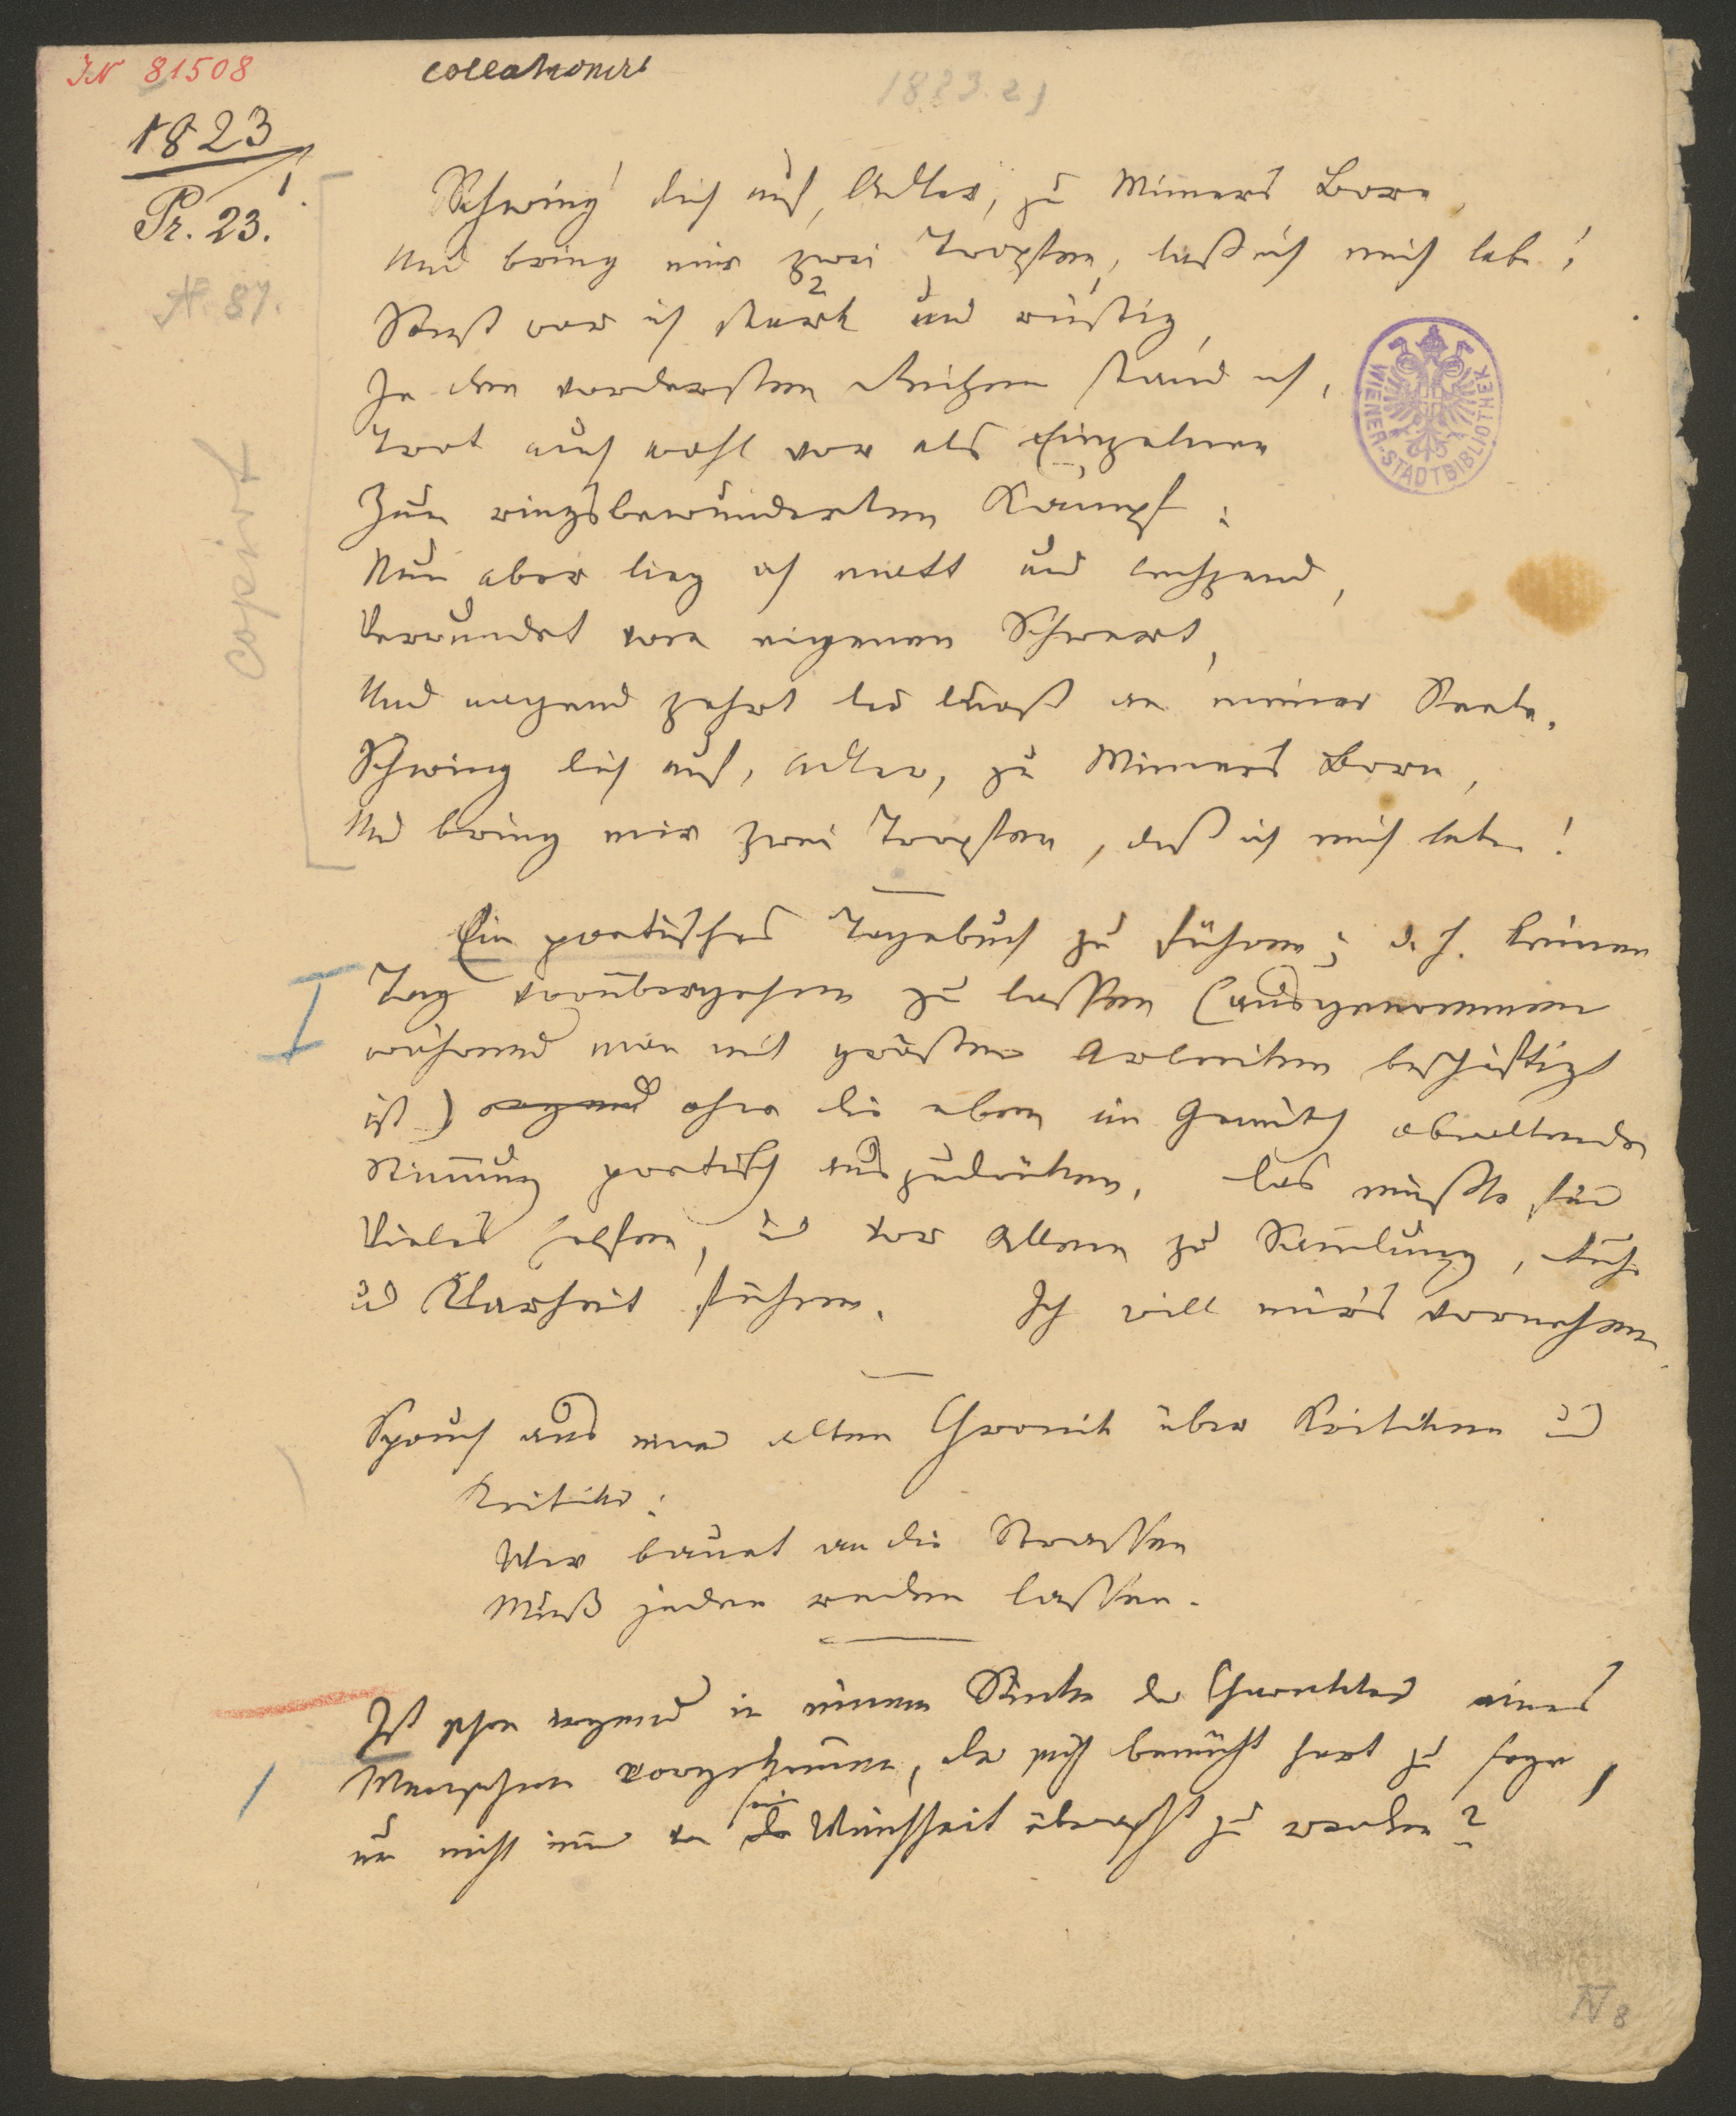 IN 81508
collationirt
1823.21
1823
1.
Pr. 23.
N. 87.
copirt
Schwing' dich auf, Adler, zu Mimers Born,
Und bring mir zwei Tropfen, daß ich mich labe!
Sonst war ich stark und rüstig,
In den vordersten Reihen stand ich,
Trat auch wohl vor als Einzelner
Zum ringsbewunderten Kampf:
Nun aber lieg ich matt und lechzend,
Verwundet vom eigenen Schwert,
Und nagend zehrt das an meiner Seele.
Schwing dich auf, Adler, zu Mimers Born,
Und bring mir zwei Tropfen, daß ich mich labe!
Ein poetisches Tagebuch zu führen; d. h. keinen
Tag vorübergehen zu lassen (ausgenommen
während man mit größern Arbeiten beschäftigt
ist) ohne die eben im Gemüth obwaltende
Stimmung poetisch auszudrücken. Das müßte für
Vieles helfen, u vor Allem zu Sammlung, Ruhe
u Klarheit führen. Ich will mir's vornehmen
Spruch aus einer alten Chronik über Kritiken u
Kritiker:
Wer bauet an die Strassen
Muß jeden reden lassen.
Ist schon irgend in einem Stücke der Charakter eines
Menschen vorgekommen, der sich bemüht hart zu seyn,
um nicht immer von seiner Weichheit überrascht zu werden?
WIENER-STADTBIBLIOTHEK
IV 8